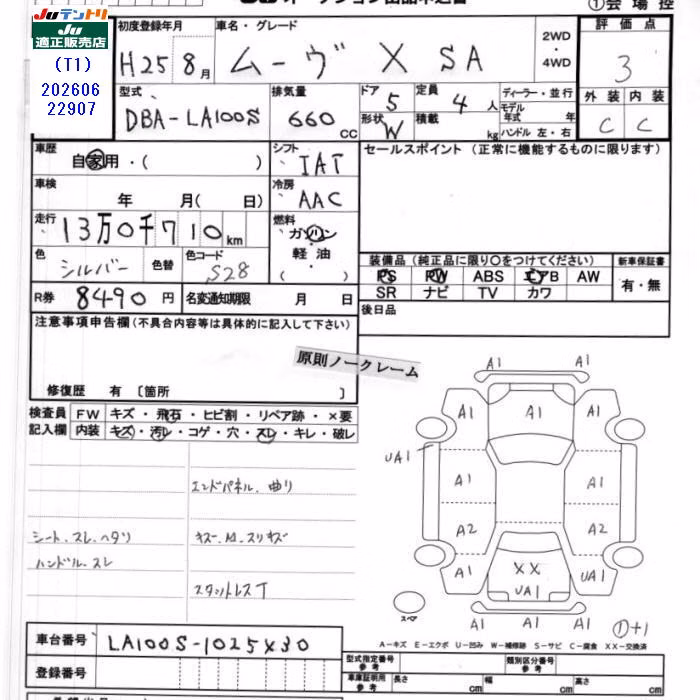 Ju テントリ
Ju 適正販売店
(T1)
202606
22907
①会場控
初度登録年月
H25 8月
車名・グレード
ムーヴ X SA
2WD
・
4WD
評価点
3
外装 内装
C C
型式
DBA-LA100S
排気量
660 CC
ドア 5
形状 W
定員 4 人
積載 kg
ディーラー・並行
モデル
年式 年
ハンドル 左・右
車歴
自家用・( )
シフト
IAT
車検
年 月( 日)
冷房
AAC
走行
13万0千710km
燃料
ガソリン
・
軽油
( )
色
シルバー
色替
色コード
S28
R券 8490円
名変通知期限 月 日
セールスポイント(正常に機能するものに限ります)
装備品(純正品に限り〇をつけてください)
PS PW ABS エアB AW
SR ナビ TV カワ
新車保証書
有・無
後日品
注意事項申告欄(不具合内容等は具体的に記入して下さい)
原則ノークレーム
修復歴 有〔箇所 〕
検査員
記入欄
FW キズ・飛石・ヒビ割・リペア跡・×要
内装 キズ・汚レ・コゲ・穴・スレ・キレ・破レ
エンドパネル.曲り
シート.スレ.ヘタリ
キズ.凹.スリキズ
ハンドル.スレ
スタッドレスT
A1 A1
A1 A1 A1
UA1
A1 A1
A2 A2
A1 XX UA1
UA1
A1 A1 A1
スペア
①+1
A-キズ E-エクボ U-凹み W-補修跡 S-サビ C-腐食 XX-交換済
車台番号
LA100S-1025X30
登録番号
型式指定番号
参考
類別区分番号
参考
車庫証明用
参考
長さ cm 幅 cm 高さ cm